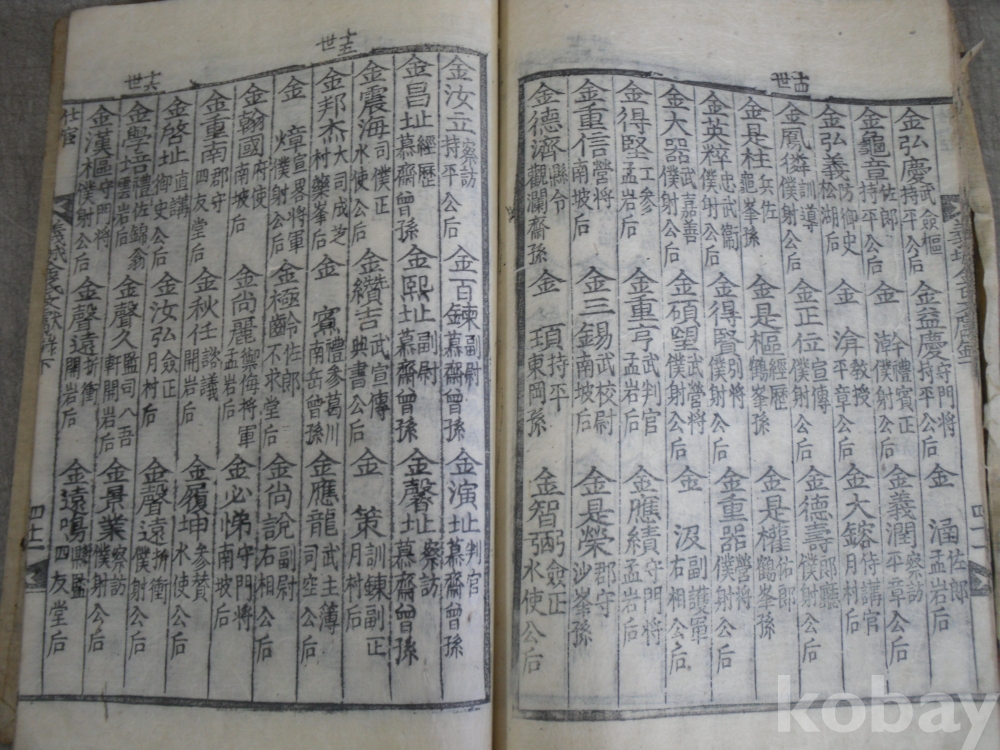 十四世
金弘慶 武僉樞 持平公后 金益慶 守門將 持平公后 金涵 佐郎 孟岩后
金龜章 佐郎 持平公后 金澣 禮賓正 僕射公后 金義潤 察訪 平章公后
金弘義 防御史 松湖后 金洊 敎授 平章公后 金大鎔 侍講官 月村后
金鳳僯 訓導 僕射公后 金正位 宣傳 僕射公后 金德壽 郎廳 僕射公后
金是柱 兵佐 鶴峯孫 金是樞 經歷 鶴峯孫 金是權 佑郎 鶴峯孫
金英粹 忠武衛 僕射公后 金得賢 別將 僕射公后 金重器 營將 僕射公后
金大器 嘉善 武僕射公后 金碩望 武營將 僕射公后 金汲 副護軍 右相公后
金得堅 工參 孟岩后 金重亨 武判官 孟岩后 金應績 守門將 孟岩后
金重信 營將 南坡后 金三錫 武校尉 南坡后 金是榮 郡守 沙峯孫
金德濟 縣令 觀瀾齋孫 金頊 持平 東岡孫 金智弼 僉正 水使公后
四十一
十五世
金汝立 察訪 持平公后 金百鍊 副尉 慕齋曾孫 金演址 判官 慕齋曾孫
金昌址 經歷 慕齋曾孫 金熙址 副尉 慕齋曾孫 金馨址 察訪 慕齋曾孫
金震海 司僕正 水使公后 金纘吉 武宣傳 典書公后 金策 訓鍊副正 月村后
金邦杰 大司成芝村 藥峯后 金賓 禮參葛川 南岳曾孫 金應龍 武主薄 司空公后
金熀 宣畧將軍 僕射公后 金極齡 佐郎 不求堂后 金尚說 副尉 右相公后
金翰國 府使 南坡后 金尚麗 禦侮將軍 孟岩后 金必悌 守門將 南坡后
金重南 郡守 四友堂后 金秋任 諮議 開岩后 金履坤 參贊 水使公后
十六世
金啓址 直講 御史公后 金汝弘 僉正 月村后 金聲遠 折衝 僕射公后
金學培 禮佐錦翁 雲岩后 金聲久 監司八吾軒 開岩后 金景業 察訪 僕射公后
金漢樞 守門將 僕射公后 金聲遠 折衝 開岩后 金遠鳴 縣監 四友堂后
仕宦
四十二
kobay